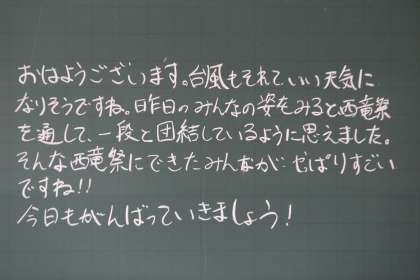 おはようございます。台風もそれていい天気に
なりそうですね。昨日のみんなの姿をみると西竜祭
を通して、一段と団結しているように思えました。
そんな西竜祭にできたみんなが、やっぱりすごい
ですね!!
今日もがんばっていきましょう!